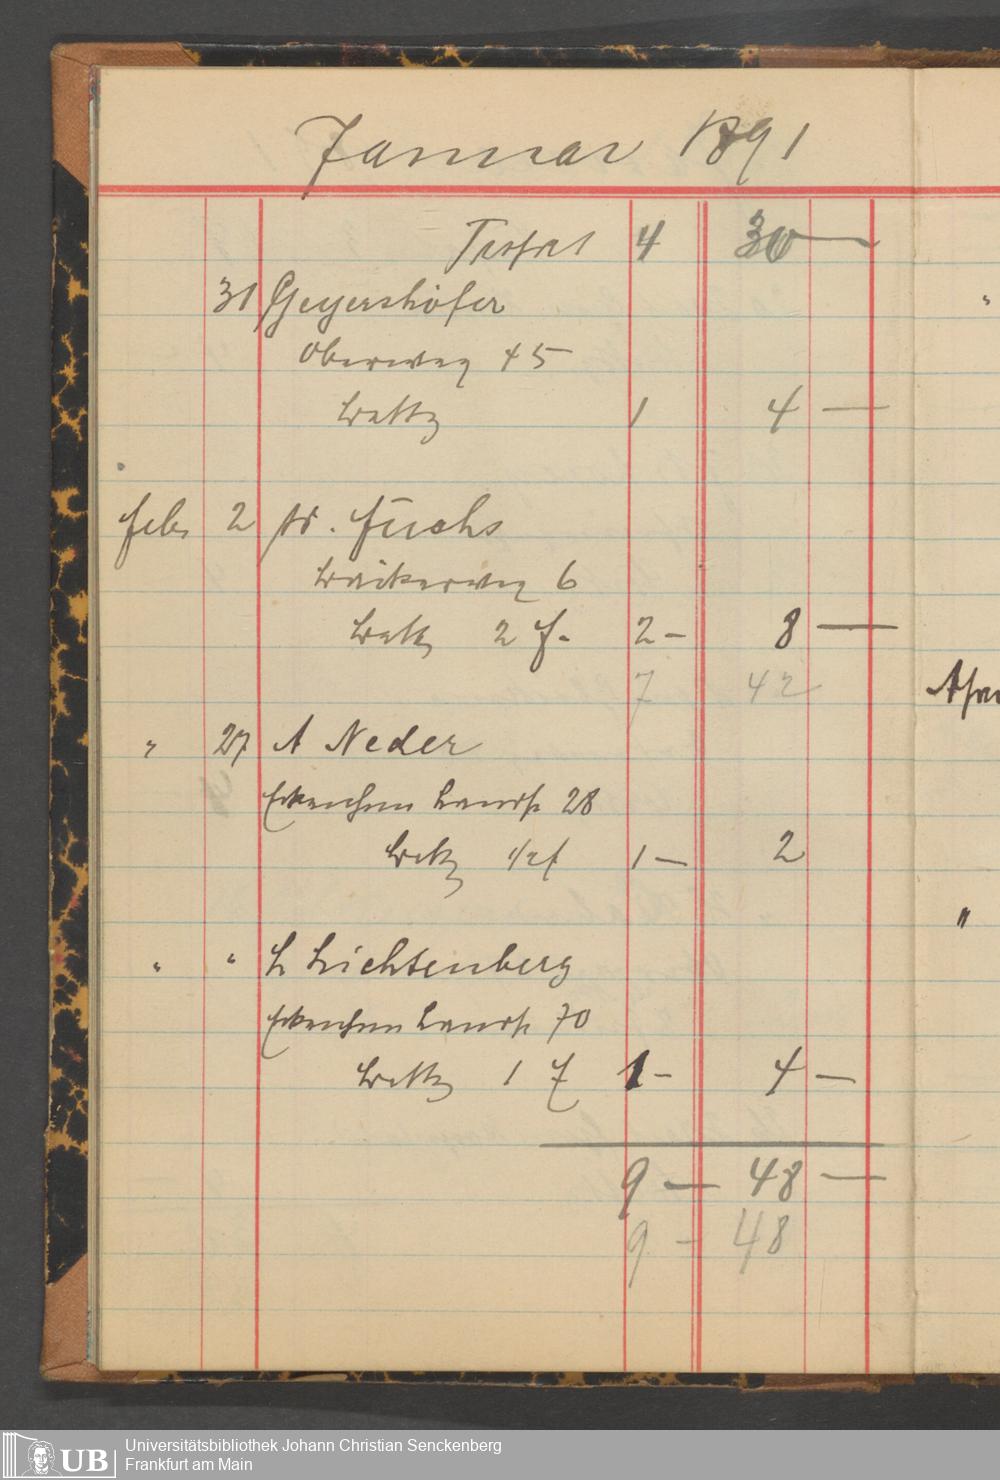 Januar 1891
4 30 —
31 Geyershöfer
Oberweg 45
1 4 —
Feb. 2 W. Fuchs
6
2 f. 2 — 8 —
7 42
" 27 A Neder
Eckenheim Landstr 28
1/2 f 1 — 2
" " L Lichtenberg
Eckenheim Landstr 70
1 f 1 — 4 —
9 — 48 —
9 — 48
"
UB
Universitätsbibliothek Johann Christian Senckenberg
Frankfurt am Main